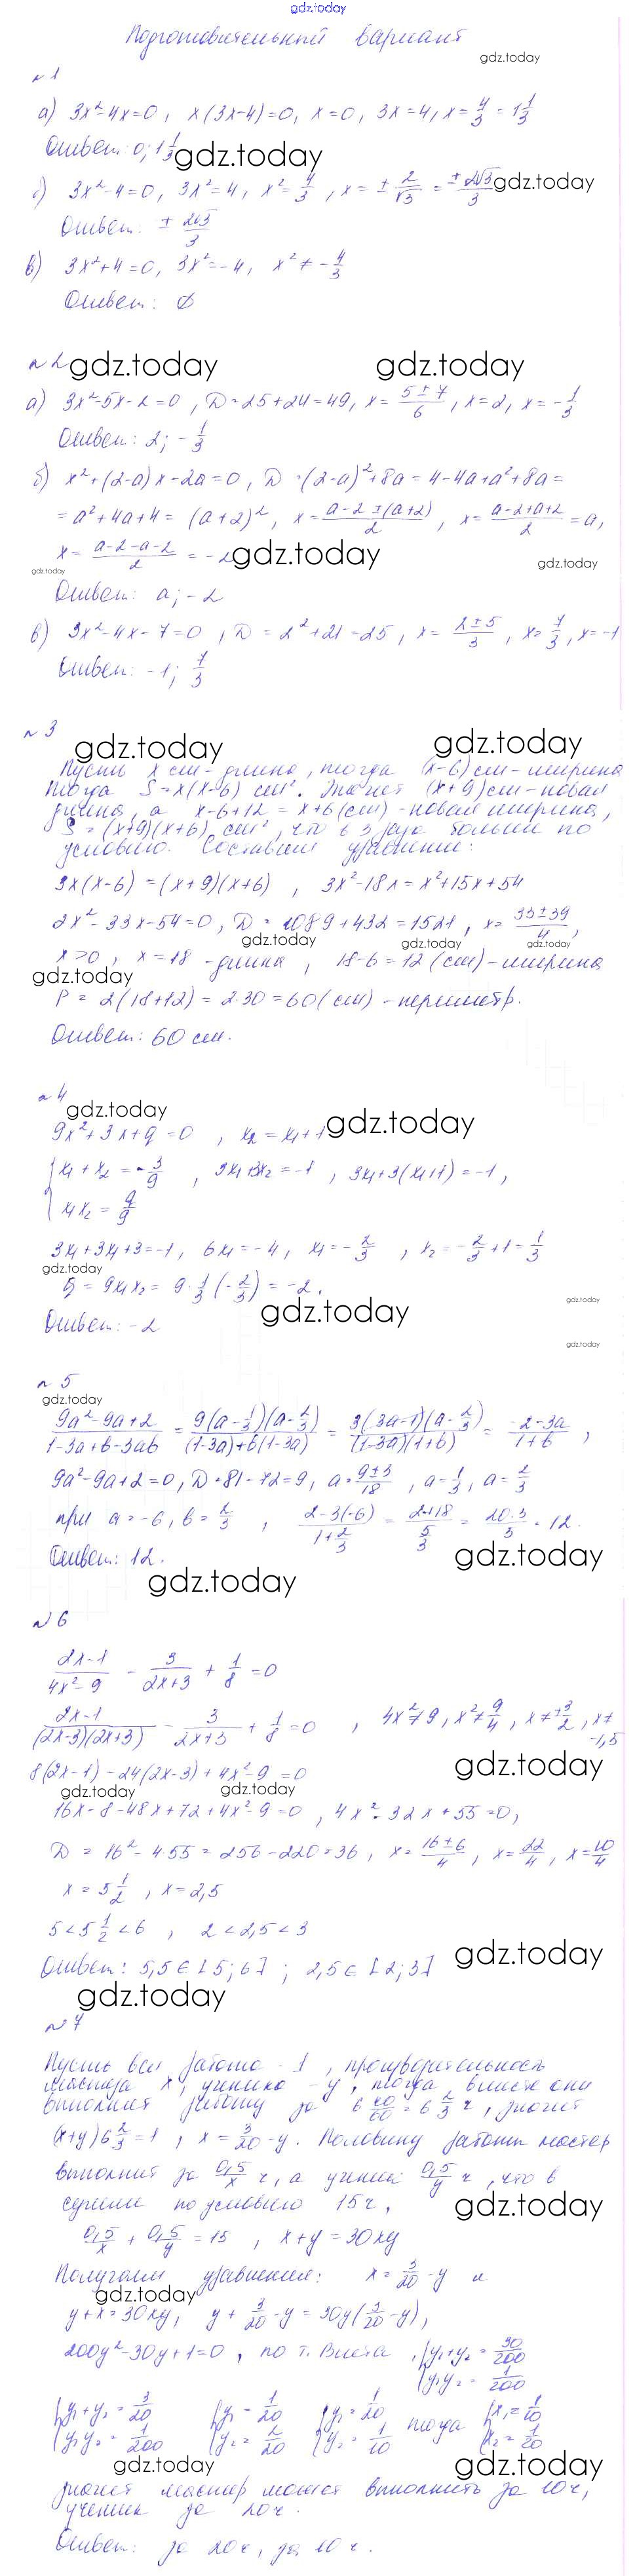 gdz.today
Подготовительный вариант
gdz.today
№1
а) 3x²-4x=0, x(3x-4)=0, x=0, 3x=4, x=4/3=1 1/3
Ответ: 0; 1 1/3
gdz.today
б) 3x²-4=0, 3x²=4, x²=4/3, x=±2/√3=±2√3/3
gdz.today
Ответ: ±2√3/3
в) 3x²+4=0, 3x²=-4, x²≠-4/3
Ответ: ∅
№2
gdz.today gdz.today
а) 3x²-5x-2=0, D=25+24=49, x=(5±7)/6, x=2, x=-1/3
Ответ: 2; -1/3
б) x²+(2-a)x-2a=0, D=(2-a)²+8a=4-4a+a²+8a=
=a²+4a+4=(a+2)², x=(a-2±(a+2))/2, x=(a-2+a+2)/2=a,
x=(a-2-a-2)/2=-2
gdz.today
gdz.today gdz.today
Ответ: a; -2
в) 3x²-4x-7=0, D=2²+21=25, x=(2±5)/3, x=7/3, x=-1
Ответ: -1; 7/3
№3
gdz.today gdz.today
Пусть x см-длина, тогда (x-6)см-ширина
Тогда S=x(x-6) см². Значит (x+9)см-новая
длина, а x-6+12=x+6(см)-новая ширина,
S=(x+9)(x+6) см², что в 3 раза больше по
условию. Составим уравнение:
3x(x-6)=(x+9)(x+6), 3x²-18x=x²+15x+54
2x²-33x-54=0, D=1089+432=1521, x=(33±39)/4,
gdz.today gdz.today gdz.today
x>0, x=18 -длина, 18-6=12(см)-ширина
gdz.today
P=2(18+12)=2·30=60(см)-периметр.
Ответ: 60 см.
№4
gdz.today
9x²+3x+q=0, x₂=x₁+1
gdz.today
{x₁+x₂=-3/9, 3x₁+3x₂=-1, 3x₁+3(x₁+1)=-1,
x₁x₂=q/9
3x₁+3x₁+3=-1, 6x₁=-4, x₁=-2/3, x₂=-2/3+1=1/3
gdz.today
q=9x₁x₂=9·1/3(-2/3)=-2.
gdz.today gdz.today
Ответ: -2
gdz.today
№5
gdz.today
(9a²-9a+2)/(1-3a+b-3ab)=9(a-1/3)(a-2/3)/((1-3a)+b(1-3a))=3(3a-1)(a-2/3)/((1-3a)(1+b))=(2-3a)/(1+b),
9a²-9a+2=0, D=81-72=9, a=(9±3)/18, a=1/3, a=2/3
при a=-6, b=2/3, (2-3(-6))/(1+2/3)=(2+18)/(5/3)=20·3/5=12.
Ответ: 12.
gdz.today
gdz.today
№6
(2x-1)/(4x²-9)-3/(2x+3)+1/8=0
(2x-1)/((2x-3)(2x+3))-3/(2x+3)+1/8=0, 4x²≠9, x²≠9/4, x≠±3/2, x≠
-1,5
8(2x-1)-24(2x-3)+4x²-9=0
gdz.today
gdz.today gdz.today
16x-8-48x+72+4x²-9=0, 4x²-32x+55=0,
D=16²-4·55=256-220=36, x=(16±6)/4, x=22/4, x=10/4
x=5 1/2, x=2,5
5<5 1/2<6, 2<2,5<3
Ответ: 5,5∈[5;6]; 2,5∈[2;3]
gdz.today
gdz.today
№7
Пусть вся работа - 1, производительность
мастера x, ученика -y, тогда вместе они
выполнят работу за 6 40/60=6 2/3 ч, значит
(x+y)6 2/3=1, x=3/20-y. Половину работы мастер
выполнит за 0,5/x ч, а ученик 0,5/y ч, что в
сумме по условию 15ч,
gdz.today
0,5/x+0,5/y=15, x+y=30xy
Получаем уравнения: x=3/20-y и
gdz.today
y+x=30xy, y+3/20-y=30y(3/20-y),
200y²-30y+1=0, по т. Виета, {y₁+y₂=30/200
y₁y₂=1/200
{y₁+y₂=3/20 {y₁=1/20 {y₁=1/20 тогда {x₁=1/10
y₁y₂=1/200 y₂=2/20 y₂=1/10 x₂=1/20
gdz.today gdz.today
значит мастер может выполнить за 10ч,
ученик за 20ч.
Ответ: за 20ч, за 10ч.